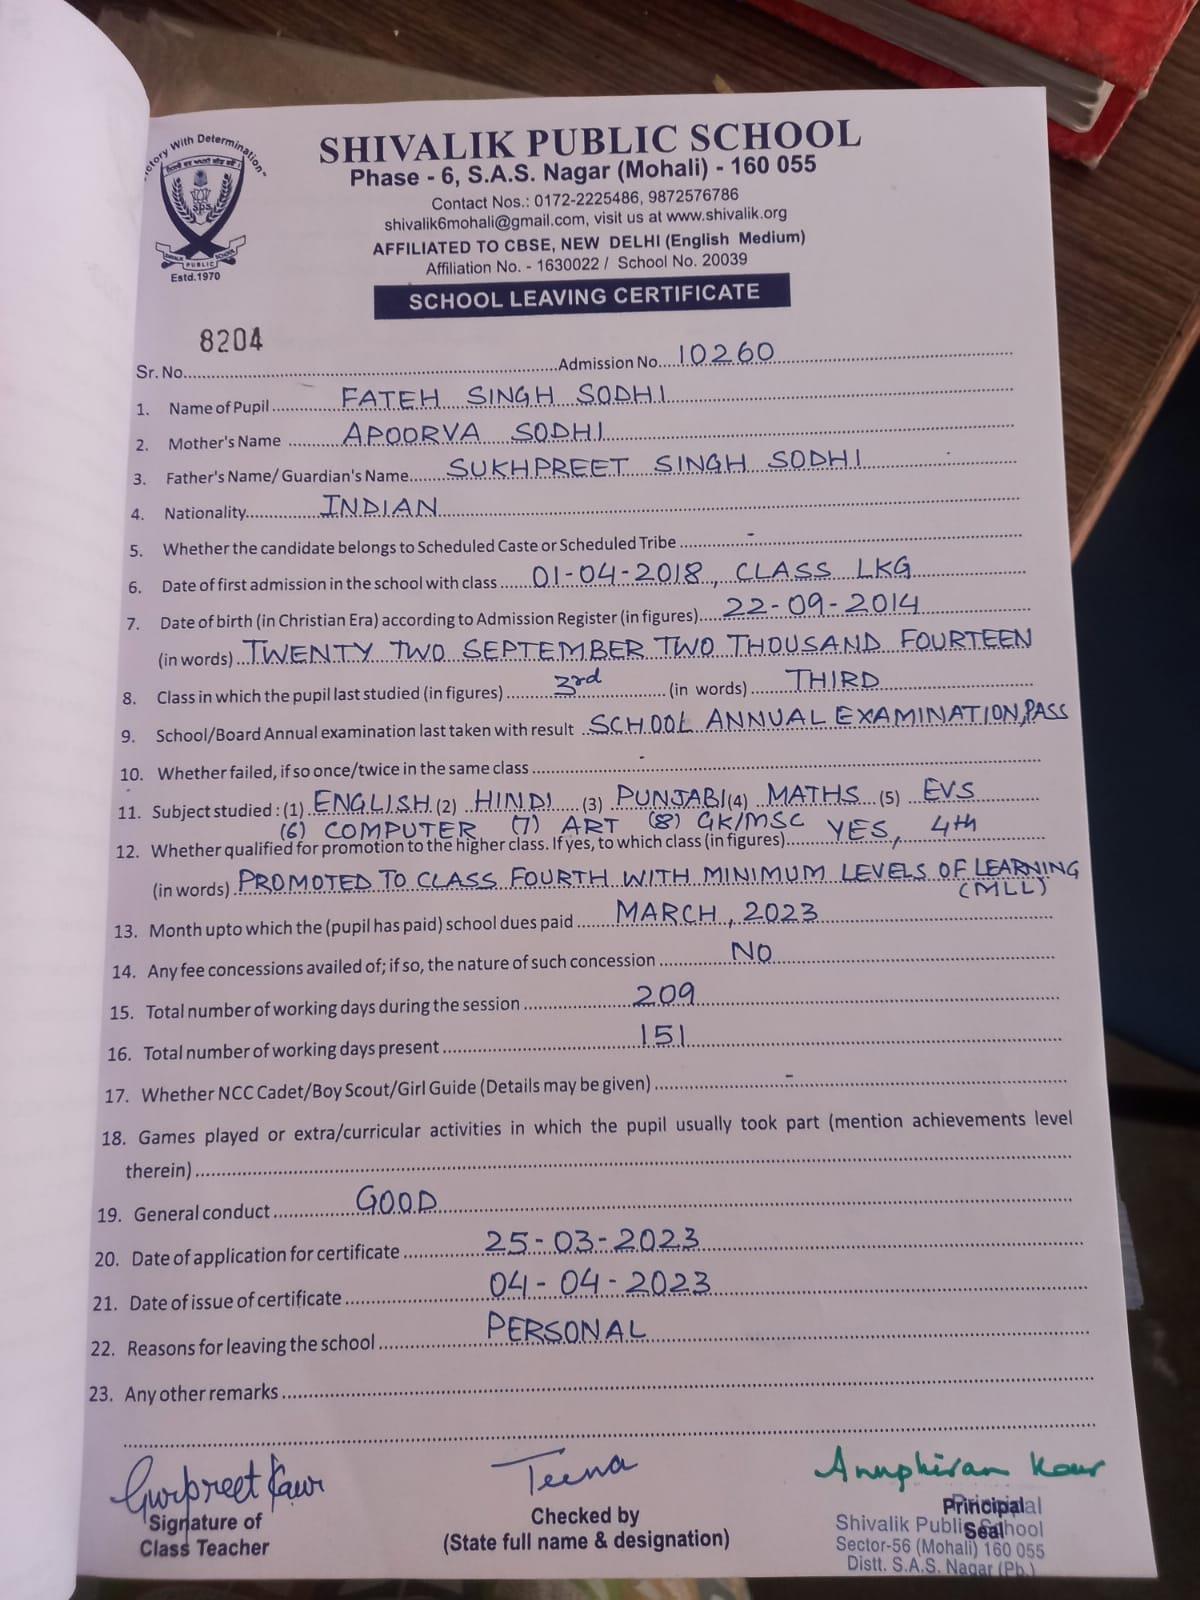 "Victory With Determination"
SPS
SHIVALIK PUBLIC SCHOOL
Estd.1970
SHIVALIK PUBLIC SCHOOL
Phase - 6, S.A.S. Nagar (Mohali) - 160 055
Contact Nos.: 0172-2225486, 9872576786
shivalik6mohali@gmail.com, visit us at www.shivalik.org
AFFILIATED TO CBSE, NEW DELHI (English Medium)
Affiliation No. - 1630022 / School No. 20039
SCHOOL LEAVING CERTIFICATE
8204
Sr. No. Admission No. 10260
1. Name of Pupil FATEH SINGH SODHI
2. Mother's Name APOORVA SODHI
3. Father's Name/ Guardian's Name SUKHPREET SINGH SODHI
4. Nationality INDIAN
5. Whether the candidate belongs to Scheduled Caste or Scheduled Tribe -
6. Date of first admission in the school with class 01-04-2018, CLASS LKG
7. Date of birth (in Christian Era) according to Admission Register (in figures) 22-09-2014
(in words) TWENTY TWO SEPTEMBER TWO THOUSAND FOURTEEN
8. Class in which the pupil last studied (in figures) 3rd (in words) THIRD
9. School/Board Annual examination last taken with result SCHOOL ANNUAL EXAMINATION, PASS
10. Whether failed, if so once/twice in the same class -
11. Subject studied : (1) ENGLISH (2) HINDI (3) PUNJABI (4) MATHS (5) EVS
(6) COMPUTER (7) ART (8) GK/MSC
12. Whether qualified for promotion to the higher class. If yes, to which class (in figures) YES, 4th
(in words) PROMOTED TO CLASS FOURTH WITH MINIMUM LEVELS OF LEARNING
(MLL)
13. Month upto which the (pupil has paid) school dues paid MARCH, 2023
14. Any fee concessions availed of; if so, the nature of such concession NO
15. Total number of working days during the session 209
16. Total number of working days present 151
17. Whether NCC Cadet/Boy Scout/Girl Guide (Details may be given) -
18. Games played or extra/curricular activities in which the pupil usually took part (mention achievements level
therein)
19. General conduct GOOD
20. Date of application for certificate 25-03-2023
21. Date of issue of certificate 04-04-2023
22. Reasons for leaving the school PERSONAL
23. Any other remarks
Gurpreet Kaur Teena Anupkiran Kaur
Signature of
Class Teacher
Checked by
(State full name & designation)
Principal
Seal
Principal
Shivalik Public School
Sector-56 (Mohali) 160 055
Distt. S.A.S. Nagar (Pb.)